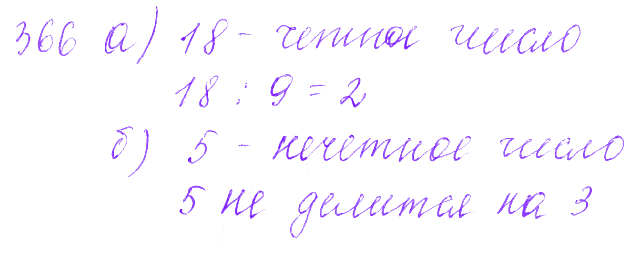 366 а) 18 - четное число
18 : 9 = 2
б) 5 - нечетное число
5 не делится на 3